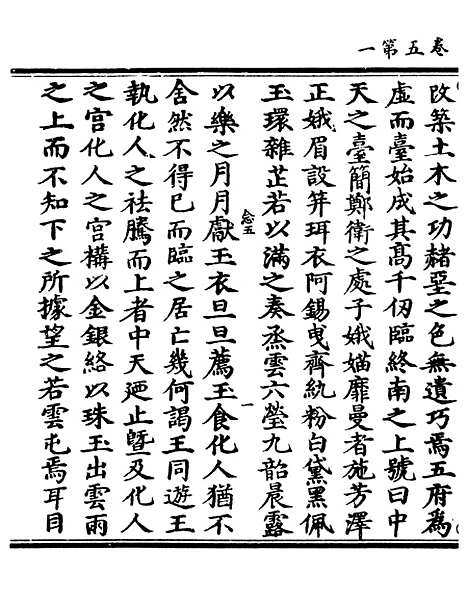 卷五第一
改築土木之功赭堊之色無遺巧焉五府為
虛而臺始成其高千仞臨終南之上號曰中
天之臺簡鄭衛之處子娥媌靡曼者施芳澤
正娥眉設笄珥衣阿錫曳齊紈粉白黛黑佩
玉環雜芷若以滿之奏烝雲六瑩九韶晨露
念五
一
以樂之月月獻玉衣旦旦薦玉食化人猶不
舍然不得已而臨之居亡幾何謁王同遊王
執化人之袪騰而上者中天迺止曁及化人
之宮化人之宮構以金銀絡以珠玉出雲雨
之上而不知下之所據望之若雲屯焉耳目